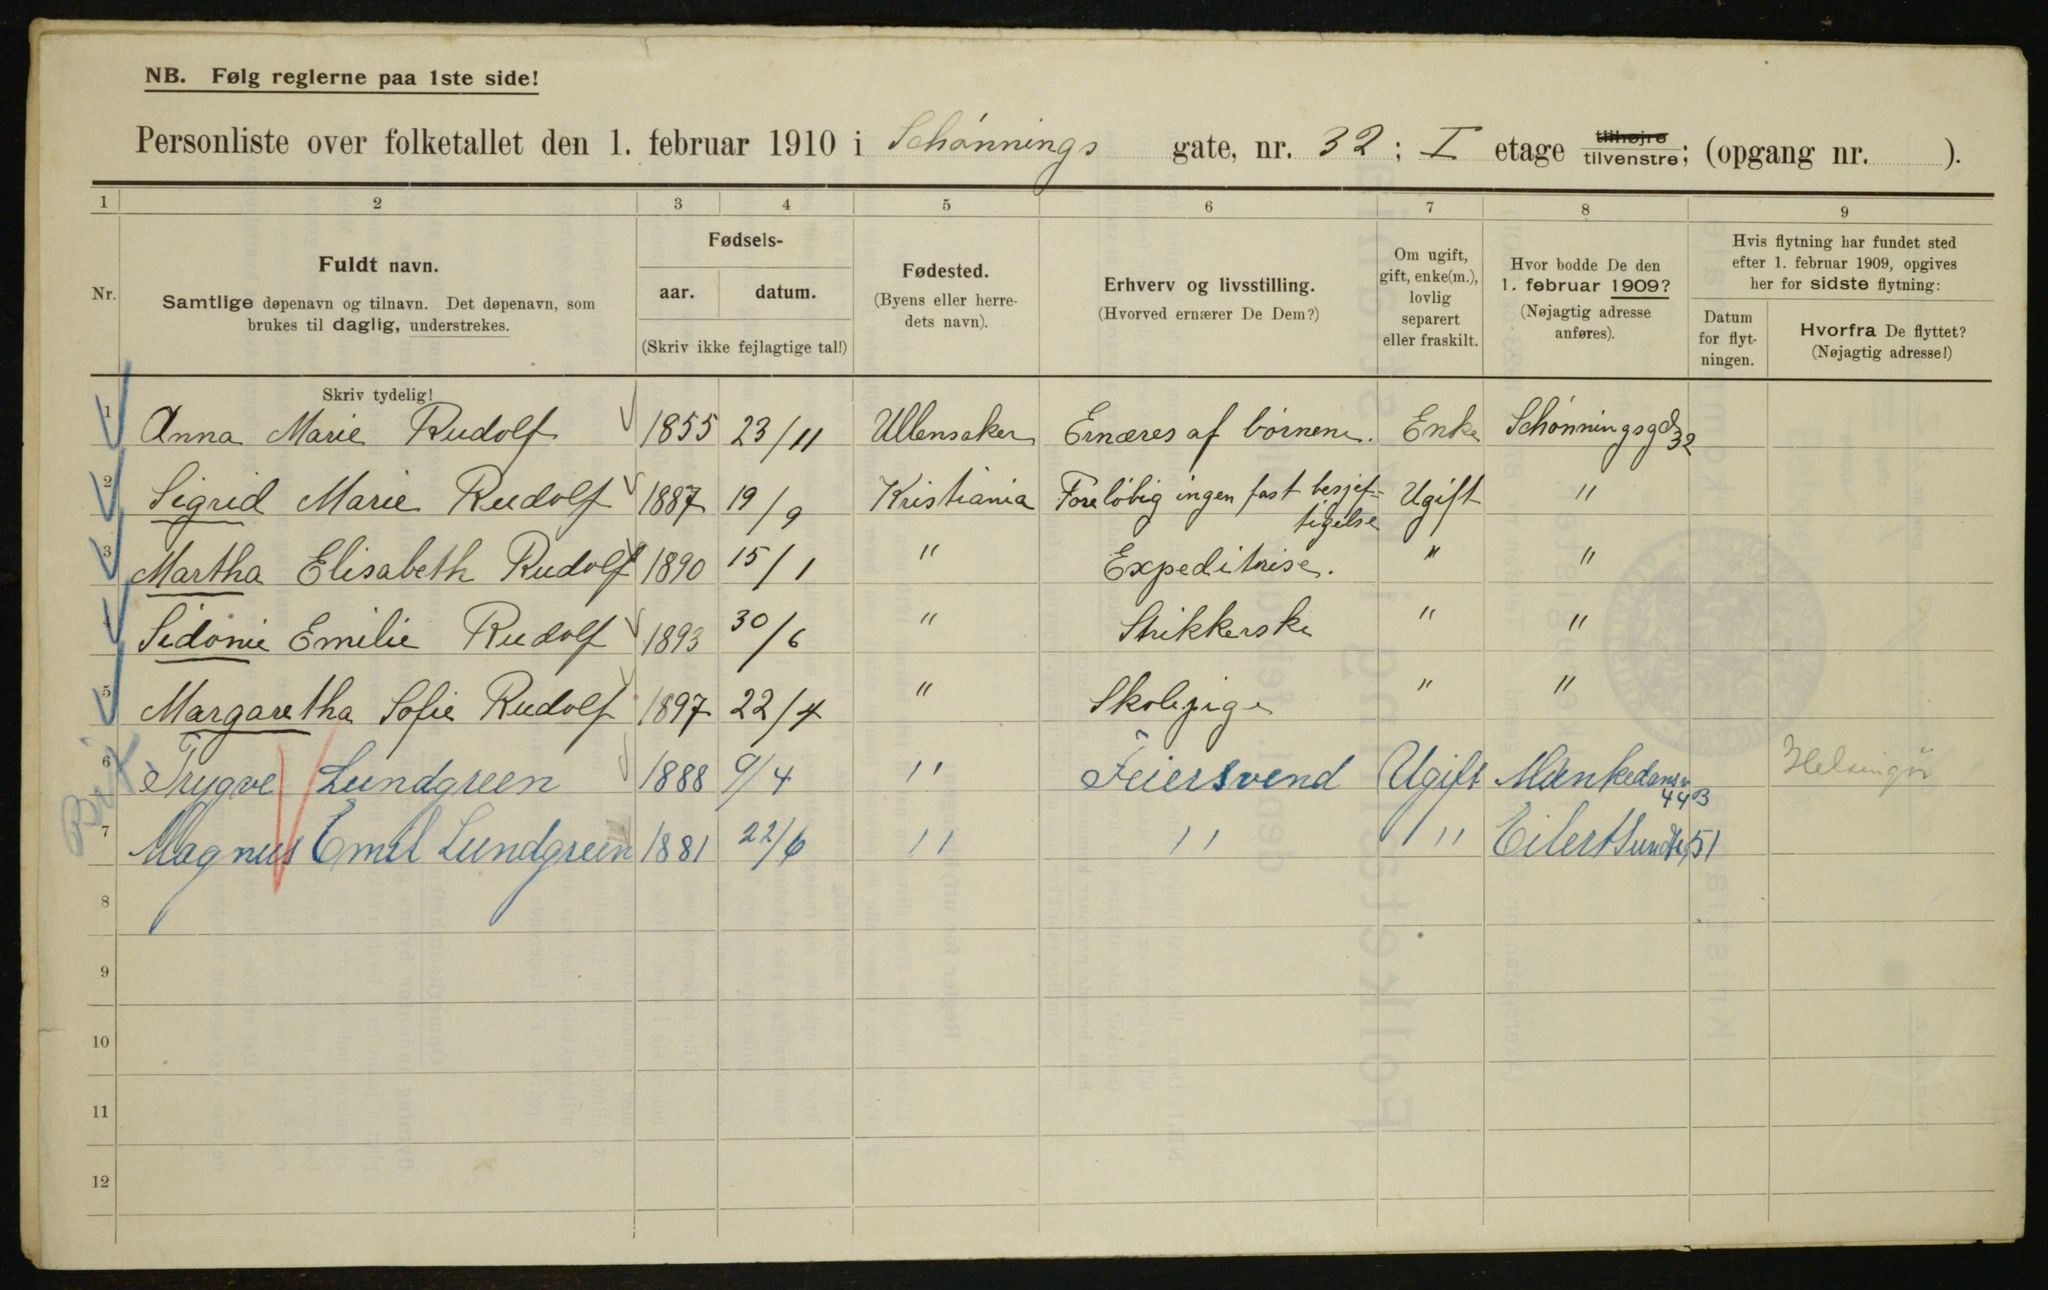 NB. Følg reglerne paa 1ste side!
Personliste over folketallet den 1. februar 1910 i Schønnings gate, nr. 32 ; I etage tilhøjre tilvenstre; (opgang nr. ).
1 2 3 4 5 6 7 8 9
Nr.
Fuldt navn.
Samtlige døpenavn og tilnavn. Det døpenavn, som
brukes til daglig, understrekes.
Skriv tydelig!
Fødsels-
aar. datum.
(Skriv ikke fejlagtige tal!)
Fødested.
(Byens eller herre-
dets navn).
Erhverv og livsstilling.
(Hvorved ernærer De Dem?)
Om ugift,
gift, enke(m.),
lovlig
separert
eller fraskilt.
Hvor bodde De den
1. februar 1909?
(Nøjagtig adresse
anføres).
Hvis flytning har fundet sted
efter 1. februar 1909, opgives
her for sidste flytning:
Datum
for flyt-
ningen.
Hvorfra De flyttet?
(Nøjagtig adresse!)
1 Anna Marie Rudolf 1855 23/11 Ullensaker Ernæres af børnene. Enke Schønningsgd 32
2 Sigrid Marie Rudolf 1887 19/9 Kristiania Foreløbig ingen fast besjef-
tigelse Ugift "
3 Martha Elisabeth Rudolf 1890 15/1 " Expeditrise. " "
4 Sidonie Emilie Rudolf 1893 30/6 " Strikkerske " "
5 Margaretha Sofie Rudolf 1897 22/4 " Skolepige " "
6 Trygve Lundgreen 1888 9/4 " Feiersvend Ugift Munkedamsv 44B Helsingör
7 Magnus Emil Lundgreen 1881 22/6 " " " Eilert Sundtsg 51
8
9
10
11
12